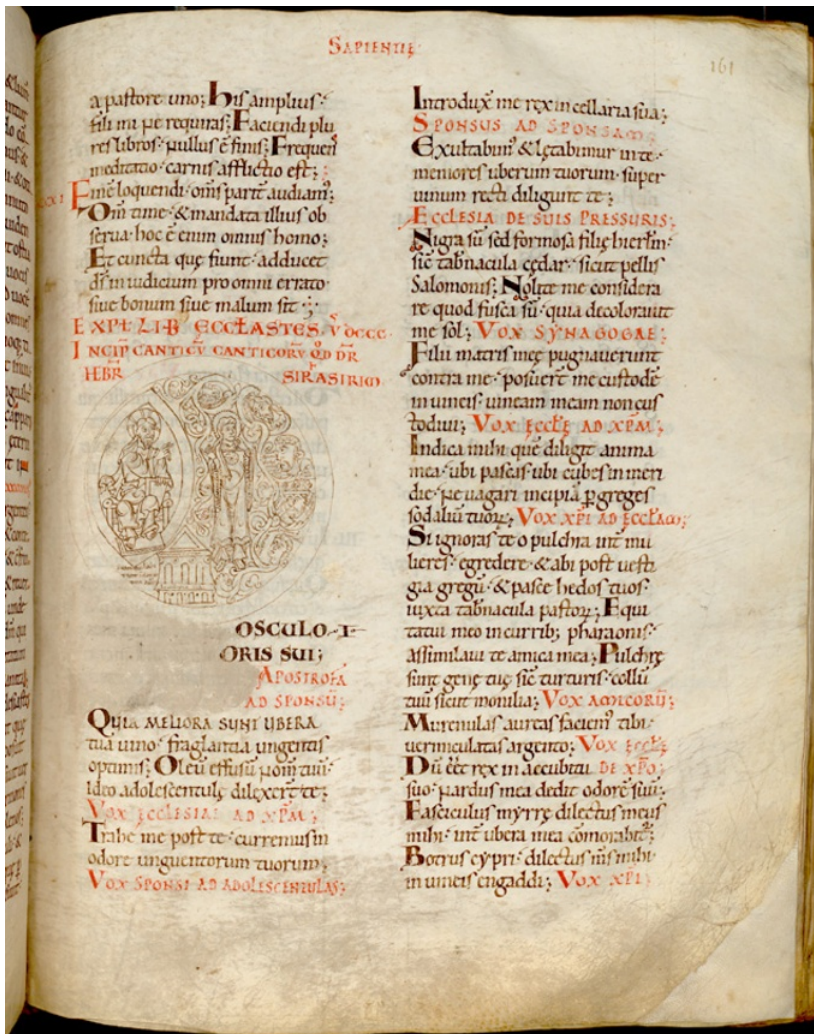 SAPIENTIĘ
161
a pastore uno; His amplius
fili mi ne requiras; Faciendi plu
res libros nullus ē finis; Frequens
meditatio carnis afflictio est;
Finē loquendi omīs parit̄ audiam;
Dm̄ time & mandata illius ob
serva hoc ē enim omnis homo;
Et cuncta quę fiunt adducet
ds̄ in iudicium pro omni errato
sive bonum sive malum sit;
EXPL LIB ECCLASTES V̄ DCCC
INCIP̄ CANTICV̄ CANTICORV̄ QD̄ DR̄
HEBR̄ SIRASIRIM
OSCULO
ORIS SUI;
APOSTROFA
AD SPONSŪ;
QUIA MELIORA SUNT UBERA
tua vino fraglantia ungentis
optimis; Oleū effusū nom̄ tuū
Ideo adolescentulę dilexert̄ te;
VOX ĘCCLESIAE AD XP̄M;
Trahe me post te curremus in
odore unguentorum tuorum;
VOX SPONSI AD ADOLESCENTULAS;
Introdux̄ me rex in cellaria sua;
SPONSUS AD SPONSAM;
Exultabim̄ & lętabimur in te
memores uberum tuorum super
vinum recti diligunt te;
ECCLESIA DE SUIS PRESSURIS;
Nigra sū sed formosa filię hierlm̄
sic̄ tab̄nacula cędar sicut pellis
Salomonis; Nolite me considera
re quod fusca sū quia decoloravit
me sol; VOX SYNAGOGAE;
Filii matris meę pugnaverunt
contra me posuert̄ me custodē
in vineis vineam meam non cus
todivi; VOX ĘCCLĘ AD XP̄M;
Indica mihi quē diligit anima
mea ubi pascas ubi cubes in meri
die ne vagari incipiā p̄ greges
sodaliū tuoꝝ; VOX XP̄I AD ĘCCLAM;
Si ignoras te o pulchra int̄ mu
lieres egredere & abi post vesti
gia gregū & pasce hedos tuos
iuxta tab̄nacula pastoꝝ; Equi
tatui meo in currib; pharaonis
assimilavi te amica mea; Pulchrę
sunt genę tuę sic̄ turturis collū
tuū sicut monilia; VOX AMICORŪ;
Murenulas aureas faciem̄ tibi
vermiculatas argento; VOX ĘCCLĘ
Dū eēt rex in accubitu DE XP̄O;
suo nardus mea dedit odorē suū;
Fasciculus myrrę dilectus meus
mihi int̄ ubera mea cōmorabit̄;
Botrus cypri dilectus m̄s mihi
in vineis engaddi; VOX XP̄I;